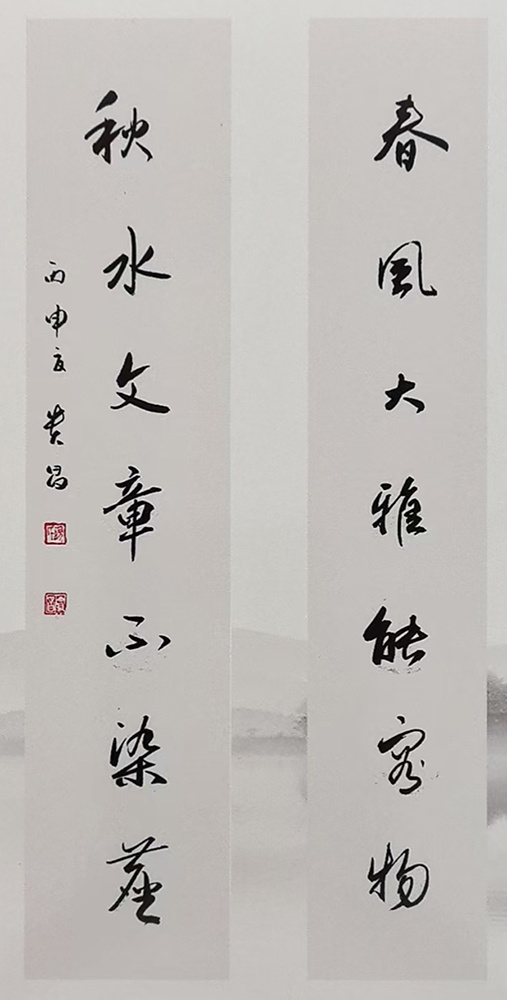 春风大雅能容物
秋水文章不染尘
丙申夏 贵昌